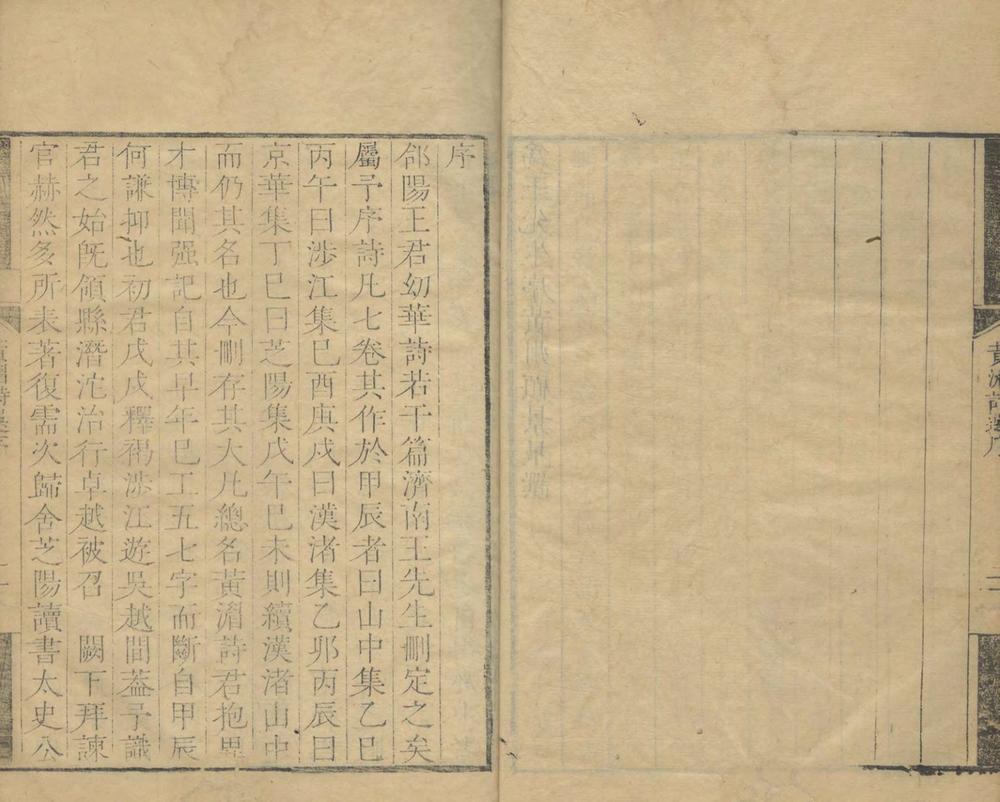 序
郃陽王君幼華詩若干篇濟南王先生刪定之矣
屬予序詩凡七卷其作於甲辰者曰山中集乙巳
丙午曰涉江集巳酉庚戍曰漢渚集乙邜丙辰曰
京華集丁巳曰芝陽集戊午巳未則續漢渚山中
而仍其名也今刪存其大凡總名黃湄詩君抱異
才博聞强記自其早年巳工五七字而斷自甲辰
何謙抑也初君戊戍釋褐涉江遊吳越間葢予識
君之始旣領縣潛沱治行卓越被召　闕下拜諫
官赫然多所表著復需次歸舍芝陽讀書太史公
黃湄詩選序